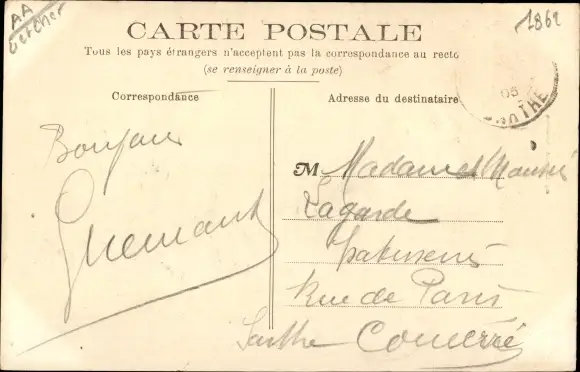 AA
1862
CARTE POSTALE
Tous les pays étrangers n'acceptent pas la correspondance au recto
(se renseigner à la poste)
Correspondance
Adresse du destinataire
05
Bonjour
M Madame
Lagarde
Rue de Paris
Sarthe